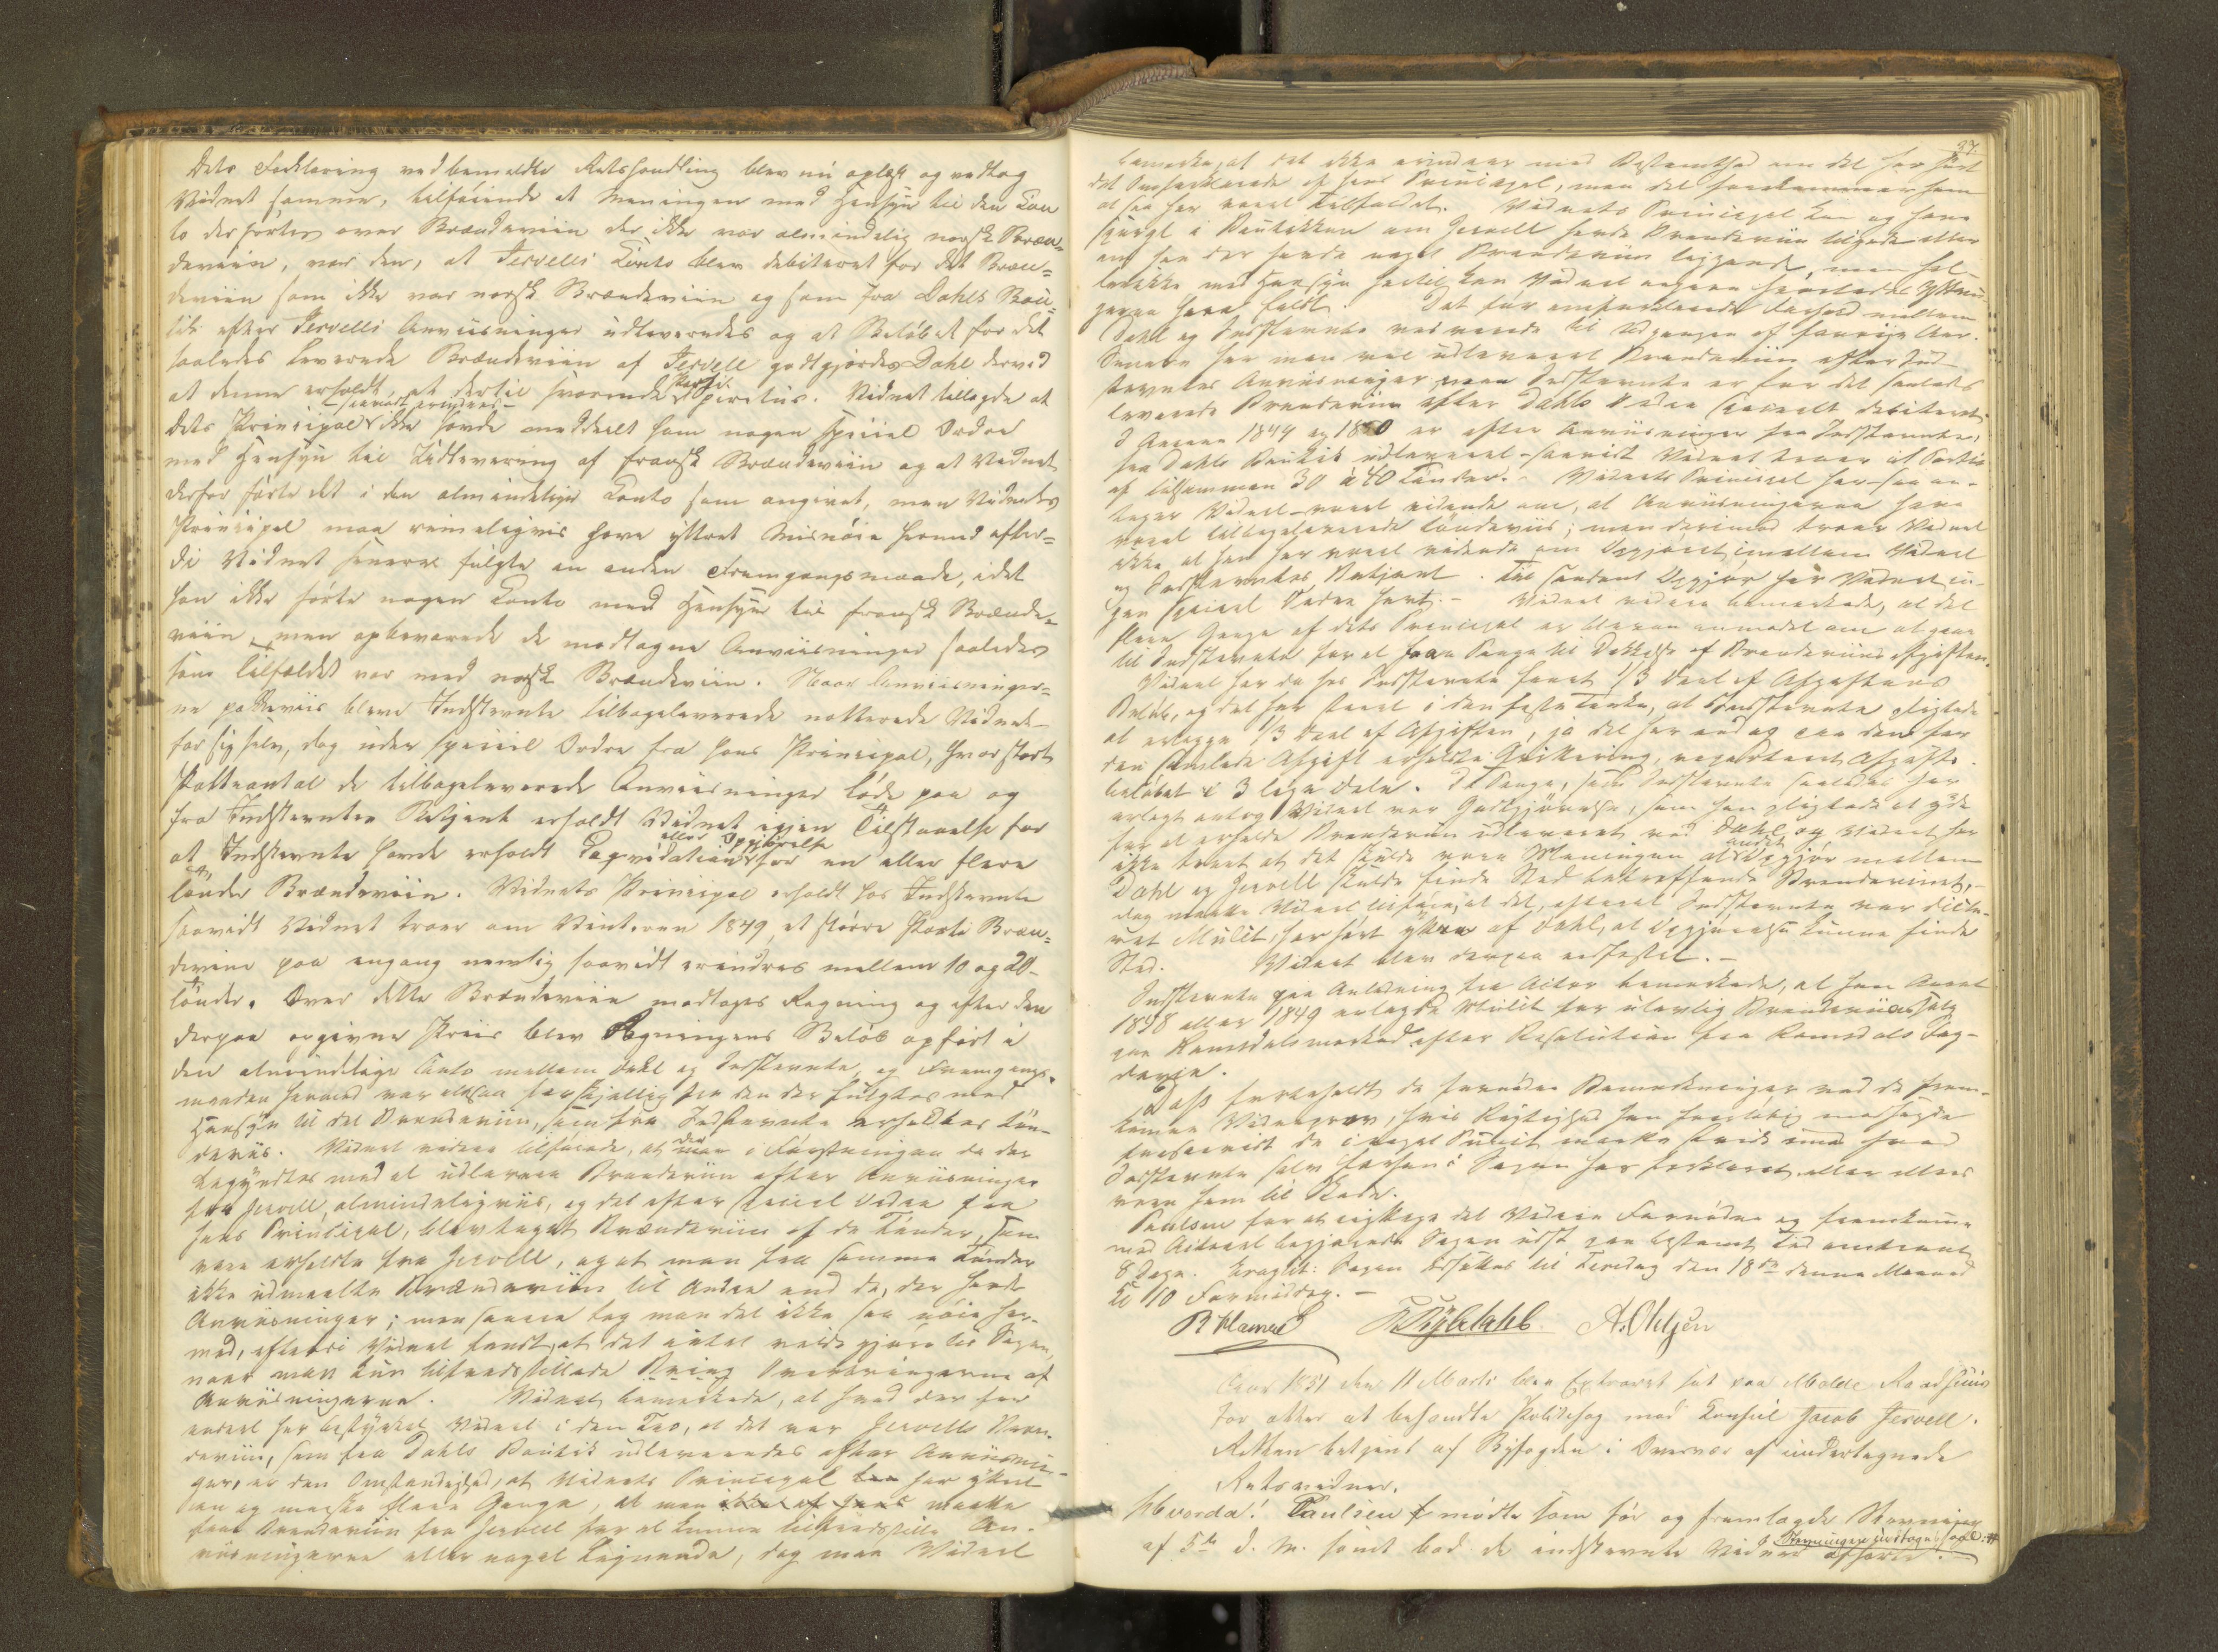 Dets Forklaring ved bemeldte Retshandling blev nu oplæst og vedtog
Vidnet samme, tilføiende at Meningen med Hensyn til den Con
to der førtes over Brændeviin der ikke var almindelig norsk Bræn=
deviin, var den, at Jervells Conto blev debiteret for det Bræn=
deviin som ikke var norsk Brændeviin og som fra Dahls Bou=
tik efter Jervells Anviisninger udleveredes og at Beløbet for det
saaledes leverede Brændeviin af Jervell godtgjordes Dahl derved
at denne erholdt et dertil svarende Parti Spiritus. Vidnet tillagde at
dets Principal -saavidt erindres- ikke havde meddeelt ham nogen speciel Ordre
med Hensyn til Udlevering af fransk Brændeviin og at Vidnet
derfor førte det i den almindelige Conto som angivet, men Vidnets
Principal maa rimeligvis have yttret Misnøie herved efter=
di Vidnet senere fulgte en anden Fremgangsmaade, idet
han ikke førte nogen Conto med Hensyn til fransk Brænde=
viin, men opbevarede de modtagne Anviisninger saaledes
som Tilfældet var med norsk Brændeviin. Naar Anviisninger=
ne potteviis bleve Indstevnte tilbageleverede notterede Vidnet
for sig selv, dog uden speciel Ordre fra hans Principal, hvor stort
Potteantal de tilbageleverede Anviisninger løde paa og
fra Indstevntes Betjent erholdt Vidnet igjen Tilstaaelse for
at Indstevnte havde erholdt Liqvidation eller Opgjørelse for en eller flere
Tønder Brændeviin. Vidnets Principal erholdt hos Indstevnte
saavidt Vidnet troer om Vinteren 1849, et større Parti Bræn=
deviin paa engang nemlig saavidt erindres mellem 10 og 20
Tønder. Over dette Brændeviin modtoges Regning og efter den
derpaa opgivne Priis blev Regningens Beløb opført i
den almindelige Conto mellem Dahl og Indstevnte, og Fremgangs-
maaden herved var altsaa forskjellig fra den der fulgtes med
Hensyn til det Brændeviin, som fra Indstevnte erholdtes tøn-
deviis. Vidnet videre tilføiede, at der i Førstningen da der
begyndtes med at udlevere Brændeviin efter Anviisninger
fra Jervell, almindeligviis, og det efter speciel Ordre fra
hans Principal, blev taget Brændeviin af de Tønder, som
vare erholdte fra Jervell, og at man fra samme Tønder
ikke udmaalte Brændeviin til Andre end de, der havde
Anviisninger; men senere tog man det ikke saa nøie her-
med, efterdi Vidnet fandt, at det intet vilde gjøre til Sagen,
naar man kun tilfredsstillede Overbringerne af
Anviisningerne. Vidnet bemærkede, at hvad der for
endeel har bestyrket Vidnet i den Tro, at det var Jervells Bræn-
deviin, som fra Dahls Boutik udleveredes efter Anviisnin-
ger, er den Omstændighed, at Vidnets Principal har yttret
en og maaske flere Gange, at man maatte
faae Brændeviin fra Jervell for at kunne tilfredsstille An-
viisningerne eller noget Lignende, dog maa Vidnet
37.
bemærke, at det ikke erindrer med Bestemthed om det har hørt
det af hans Principal, men det forekommer ham
at saa har været Tilfældet. Vidnets Principal kan og have
spurgt i Boutikken om Jervell havde Brændeviin tilgode eller
om han der havde noget Brændeviin liggende, men hel-
ler ikke med Hensyn hertil kan Vidnet
Forhold mellem
Dahl og Indstevnte vedvarede til Udgangen af forrige Aar.
Senere har man vel udleveret Brændeviin efter Ind-
stevntes Anviisninger men Indstevnte er for det saaledes
leverede Brændeviin efter Dahls Ordre specielt debiteret.
I Aarene 1849 og 1850 er efter Anviisninger fra Indstevnte,
fra Dahls Boutik udleveret -saavidt Vidnet troer et Parti
af tilsammen 30 à 40 Tønder. - Vidnets Principal har -saa an-
tager Vidnet- været vidende om, at Anviisningerne have
været tilbageleverede tøndeviis; men derimod troer Vidnet
ikke at han har været vidende om Opgjøret imellem Vidnet
og Indstevntes Betjent. Til saadant Opgjør har Vidnet in-
gen speciel Ordre havt. - Vidnet videre bemærkede, at det
flere Gange af dets Principal er bleven anmodet om at gaae
til Indstevnte for at faae Penge til Dækkelse af Brændeviinsafgiften.
Vidnet har da hos Indstevnte faaet 1/3 Deel af Afgiftens
Beløb, og det har staaet i den faste Tanke, at Indstevnte pligtede
at erlægge 1/3 Deel af Afgiften, ja det har endog paa den for
den samlede Afgift erholdte Qvittering, reparteret Afgifts-
beløbet i 3 lige Dele. De Penge, som Indstevnte saaledes har
erlagt antog Vidnet var Godtgjørelse, som han pligtede at yde
for at erholde Brændeviin udleveret ved Dahl og Vidnet har
ikke troet at det skulde være Meningen at andet Opgjør mellem
Dahl og Jervell skulde finde Sted betræffende Brændeviinet, -
dog maatte Vidnet tilføie, at det, efterat Indstevnte var dicte-
ret Mulct, har hørt yttre af Dahl, at Opgjørelse kunne finde
Sted. Vidnet blev derpaa eedfæstet. -
Indstevnte paa Anledning fra Actor bemærkede, at han Aaret
1848 eller 1849 erlagde Mulct for ulovlig Brændeviinssalg
paa Romsdalsmarked efter Resolution fra Romsdals Fog-
derie.
Dass forbeholdt de fornødne Bemærkninger ved de frem-
komne Vidneprov, hvis Rigtighed han foreløbig modsagde
forsaavidt de i noget Punct maatte stride imod hvad
Indstevnte selv har i Sagen forklaret eller ellers
være ham til Skade.
Paulsen for at iagttage det Videre Fornødne og fremkomme
med Actorat begjærede Sagen udsat paa bestemt Tid omtrent
8 Dage. Eragtet: Sagen udsættes til Tirsdag den 18de denne Maaned
Kl 10 Formiddag. -
A. Olsen
Aar 1851 den 11 Marts blev Extraret sat paa Molde Raadhuus
for atter at behandle Politiesag mod Consul Jacob Jervell.
Retten betjent af Byfogden i Overvær af undertegnede
Retsvidner.
Hvorda! Paulsen mødte som før og fremlagde Stevninger
af 5te d. M. samt bad de indstevnte Vidner afhørte.
Stevningen modtoges saal: #